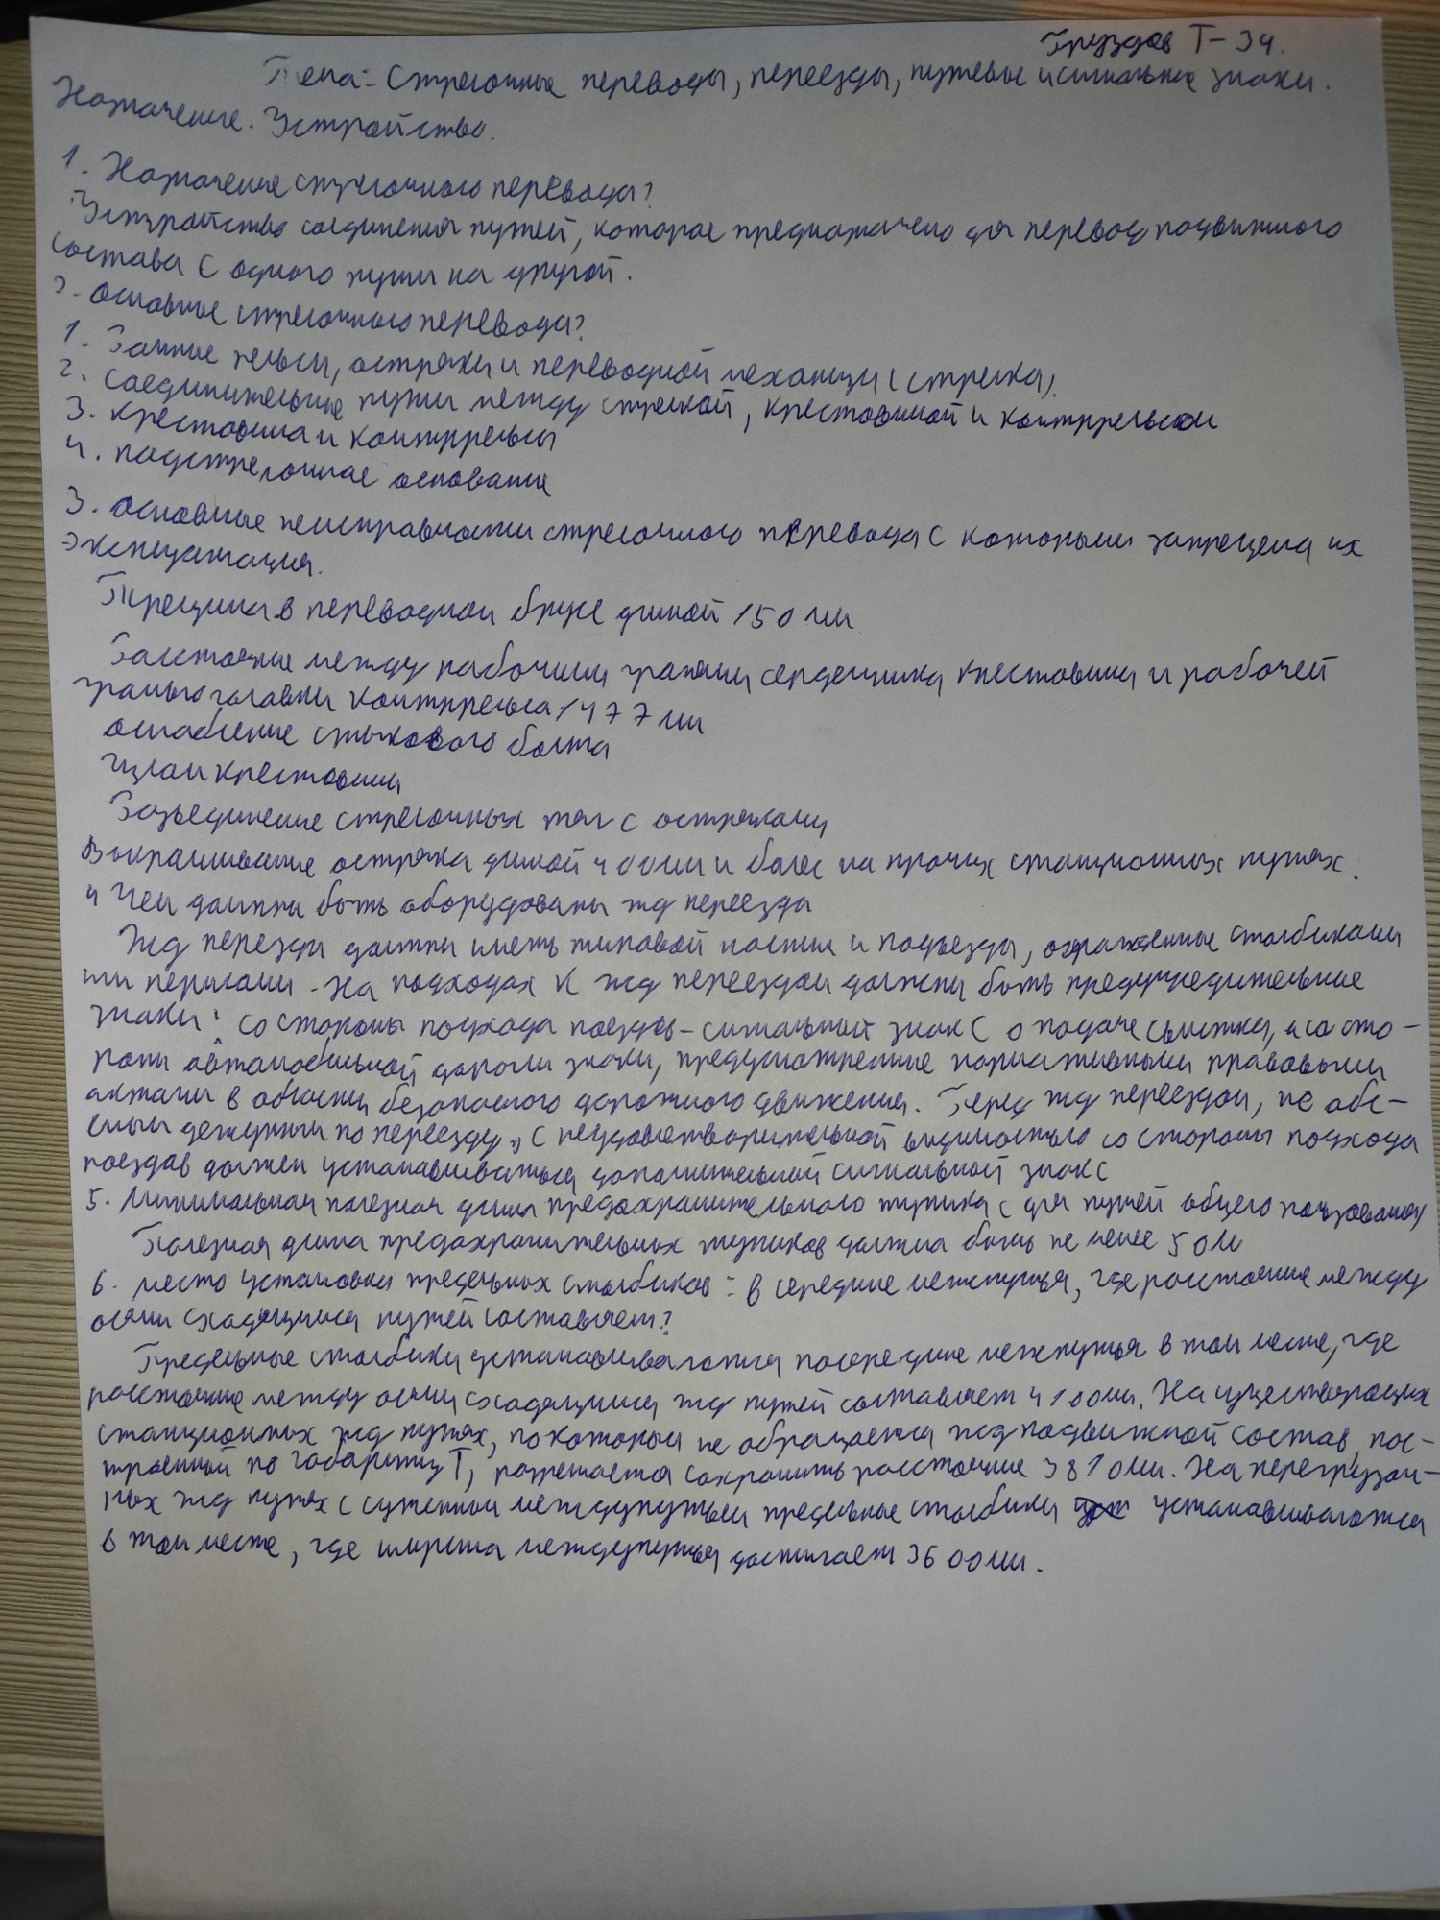 Груздев Т-34.
Тема: Стрелочные переводы, переезды, путевые и сигнальные знаки.
Назначение. Устройство.
1. Назначение стрелочного перевода?
Устройство соединения путей, которое предназначено для перевод подвижного
состава с одного пути на другой.
2. Основные стрелочного перевода?
1. Рамные рельсы, остряки и переводной механизм (стрелка).
2. Соединительные пути между стрелкой, крестовиной и контррельсом
3. Крестовина и контррельсы
4. подстрелочное основание
3. Основные неисправности стрелочного перевода с которыми запрещена их
эксплуатация.
Трещина в переводном брусе длиной 150 мм
Расстояние между рабочими гранями сердечника крестовины и рабочей
гранью головки контррельса 1477 мм
ослабление стыкового болта
Излом крестовины
Разъединение стрелочных тяг с остряками
Выкрашивание остряка длиной 400мм и более на прочих станционных путях.
4 Чем должны быть оборудованы жд переезды
Жд переезды должны иметь типовой настил и подъезды, огражденные столбиками
или перилами. На подходах к жд переездам должны быть предупредительные
знаки: со стороны подхода поездов - сигнальный знак С о подаче свистка, а со сто-
роны автомобильной дороги знаки, предусмотренные нормативными правовыми
актами в области безопасного дорожного движения. Перед жд переездом, не обс-
емым дежурным по переезду, с неудовлетворительной видимостью со стороны подхода
поездов должен устанавливаться дополнительный сигнальный знак С
5. Минимальная полезная длина предохранительного тупика с для путей общего пользования)
Полезная длина предохранительных тупиков должна быть не менее 50 м
6. место установки предельных столбиков: в середине междупутья, где расстояние между
осями сходящихся путей составляет?
Предельные столбики устанавливаются посередине междупутья в том месте, где
расстояние между осями сходящихся жд путей составляет 4100мм. На существующих
станционных жд путях, по которым не обращается жд подвижной состав, пос-
троенный по габариту Т, разрешается сохранить расстояние 3810мм. На перегрузоч-
ных жд путях с суженным междупутьем предельные столбики устанавливаются
в том месте, где ширина междупутья достигает 3600мм.